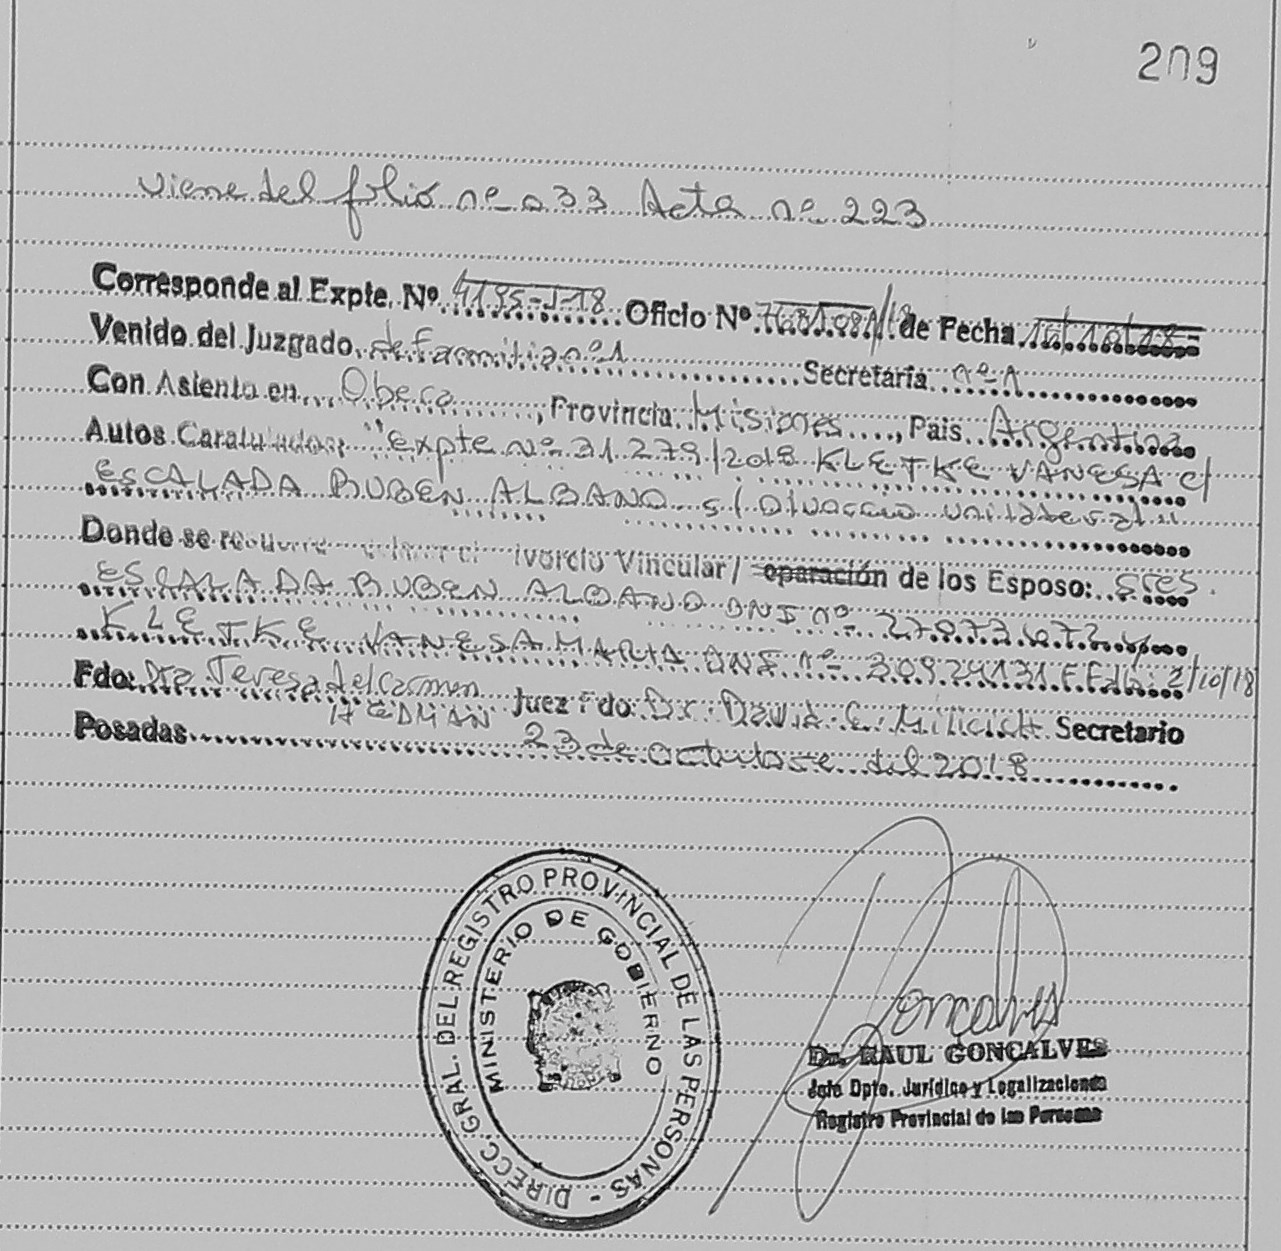 209
Viene del folio nº 033 Acta nº 223
Corresponde al Expte. Nº 4195-J-18 Oficio Nº de Fecha 16/10/18
Venido del Juzgado de familia nº 1 Secretaria nº 1
Con Asiento en Obera, Provincia Misiones, Pais Argentina
Autos Caratulados: "Expte nº 31.279/2018 KLETKE VANESA c/
ESCALADA RUBEN ALBANO s/ Divorcio unilateral"
Donde se ivorcio Vincular/ eparación de los Esposo: sres.
ESCALADA RUBEN ALBANO DNI nº 27.873.672 y
KLETKE VANESA MARIA DNI nº 30.924.131 2/10/18
Fdo: Dra Teresa del Carmen HEDMAN Juez Fdo Dr. David E. Milicich Secretario
Posadas 23 de octubre del 2018
DIRECC. GRAL. DEL REGISTRO PROVINCIAL DE LAS PERSONAS -
MINISTERIO DE GOBIERNO
Goncalves
Dr. RAUL GONCALVES
Jefe Dpto. Jurídico y Legalizaciones
Registro Provincial de las Personas